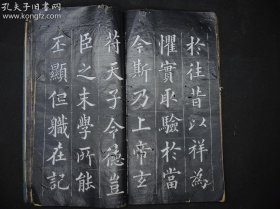 孔夫子旧书网
於往昔以祥為
懼實取驗於當
今斯乃上帝玄
符天子令德豈
臣之末學所能
丕顯但職在記